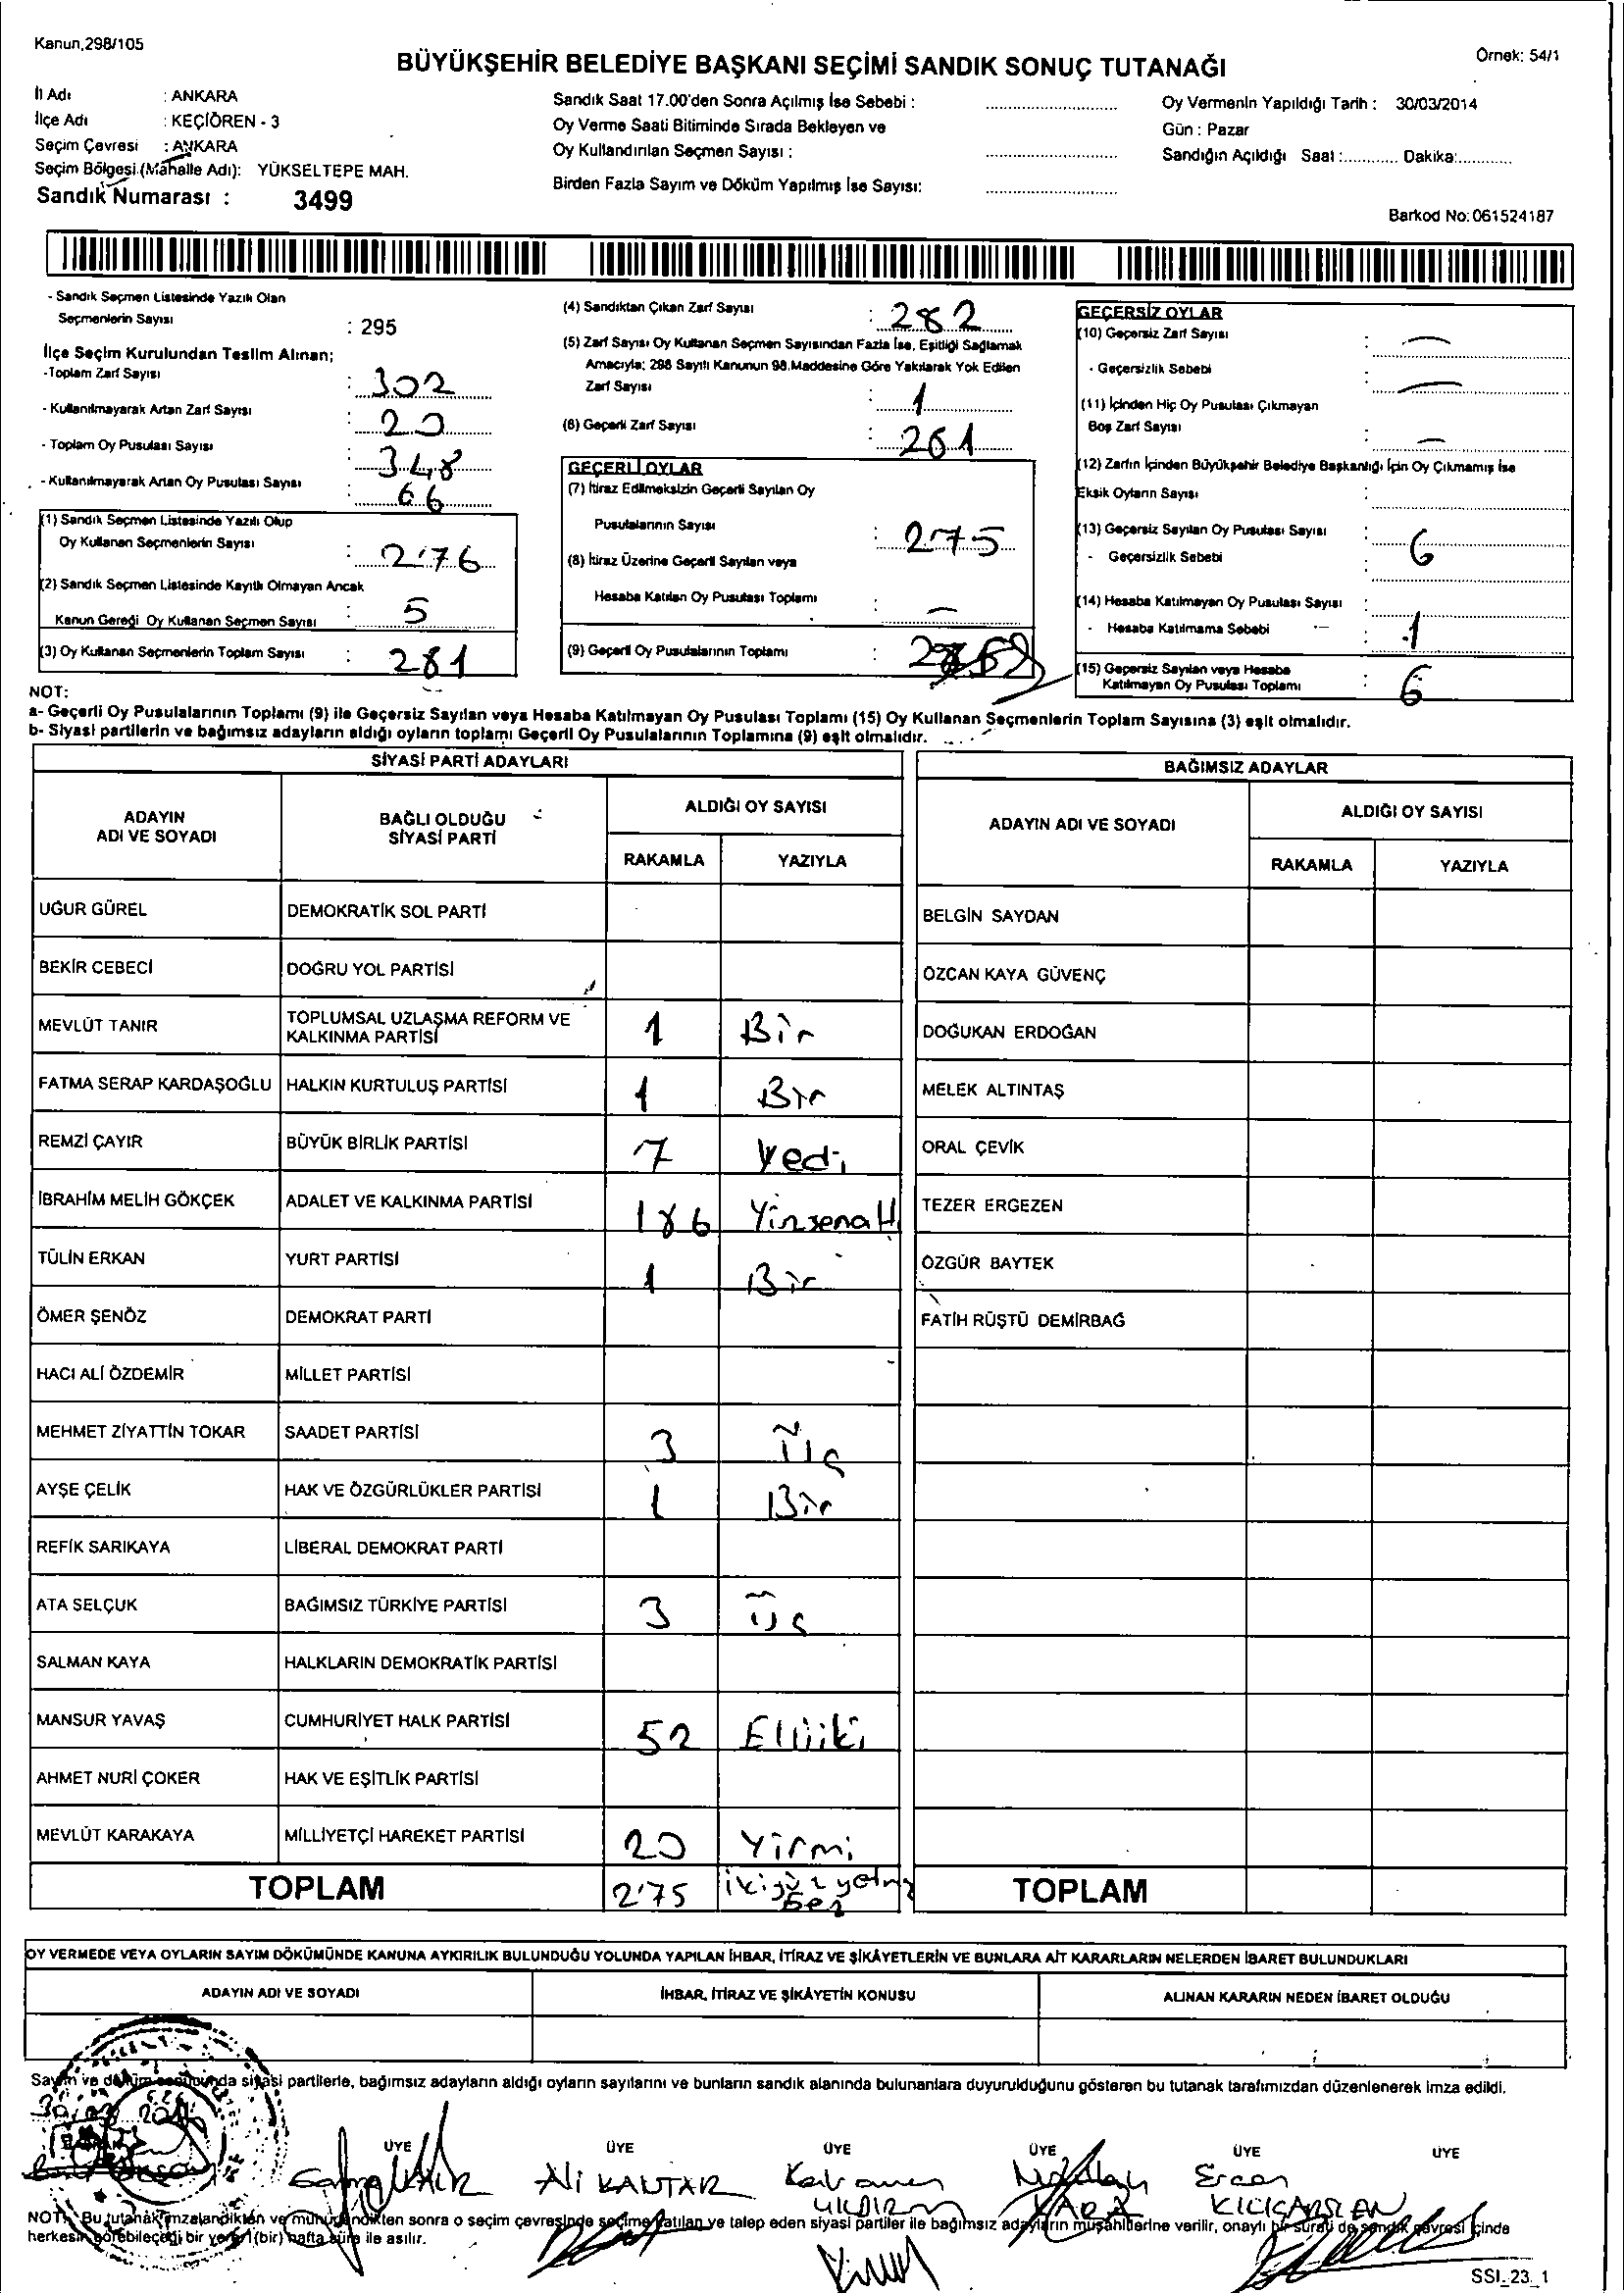 Kanun,298/105
Örnek: 54/1
BÜYÜKŞEHİR BELEDİYE BAŞKANI SEÇİMİ SANDIK SONUÇ TUTANAĞI
İl Adı : ANKARA
İlçe Adı : KEÇİÖREN - 3
Seçim Çevresi : ANKARA
Seçim Bölgesi (Mahalle Adı): YÜKSELTEPE MAH.
Sandık Numarası : 3499
Sandık Saat 17.00'den Sonra Açılmış İse Sebebi :
Oy Verme Saati Bitiminde Sırada Bekleyen ve
Oy Kullandırılan Seçmen Sayısı :
Birden Fazla Sayım ve Döküm Yapılmış İse Sayısı:
Oy Vermenin Yapıldığı Tarih : 30/03/2014
Gün : Pazar
Sandığın Açıldığı Saat :............ Dakika:...........
Barkod No: 061524187
- Sandık Seçmen Listesinde Yazılı Olan
Seçmenlerin Sayısı : 295
İlçe Seçim Kurulundan Teslim Alınan;
-Toplam Zarf Sayısı : 302
- Kullanılmayarak Artan Zarf Sayısı : 20
- Toplam Oy Pusulası Sayısı : 348
- Kullanılmayarak Artan Oy Pusulası Sayısı : 66
(1) Sandık Seçmen Listesinde Yazılı Olup
Oy Kullanan Seçmenlerin Sayısı : 276
(2) Sandık Seçmen Listesinde Kayıtlı Olmayan Ancak
Kanun Gereği Oy Kullanan Seçmen Sayısı : 5
(3) Oy Kullanan Seçmenlerin Toplam Sayısı : 281
(4) Sandıktan Çıkan Zarf Sayısı : 282
(5) Zarf Sayısı Oy Kullanan Seçmen Sayısından Fazla İse, Eşitliği Sağlamak
Amacıyla; 298 Sayılı Kanunun 98.Maddesine Göre Yakılarak Yok Edilen
Zarf Sayısı : 1
(6) Geçerli Zarf Sayısı : 281
GEÇERLİ OYLAR
(7) İtiraz Edilmeksizin Geçerli Sayılan Oy
Pusulalarının Sayısı : 275
(8) İtiraz Üzerine Geçerli Sayılan veya
Hesaba Katılan Oy Pusulası Toplamı : —
(9) Geçerli Oy Pusulalarının Toplamı :
GEÇERSİZ OYLAR
(10) Geçersiz Zarf Sayısı : —
- Geçersizlik Sebebi : —
(11) İçinden Hiç Oy Pusulası Çıkmayan
Boş Zarf Sayısı : —
(12) Zarfın İçinden Büyükşehir Belediye Başkanlığı İçin Oy Çıkmamış İse
Eksik Oyların Sayısı :
(13) Geçersiz Sayılan Oy Pusulası Sayısı : 6
- Geçersizlik Sebebi :
(14) Hesaba Katılmayan Oy Pusulası Sayısı :
- Hesaba Katılmama Sebebi : 1
(15) Geçersiz Sayılan veya Hesaba
Katılmayan Oy Pusulası Toplamı : 6
NOT:
a- Geçerli Oy Pusulalarının Toplamı (9) ile Geçersiz Sayılan veya Hesaba Katılmayan Oy Pusulası Toplamı (15) Oy Kullanan Seçmenlerin Toplam Sayısına (3) eşit olmalıdır.
b- Siyasi partilerin ve bağımsız adayların aldığı oyların toplamı Geçerli Oy Pusulalarının Toplamına (9) eşit olmalıdır.
SİYASİ PARTİ ADAYLARI
ADAYIN ADI VE SOYADI
BAĞLI OLDUĞU SİYASİ PARTİ
ALDIĞI OY SAYISI
RAKAMLA YAZIYLA
UĞUR GÜREL DEMOKRATİK SOL PARTİ
BEKİR CEBECİ DOĞRU YOL PARTİSİ
MEVLÜT TANIR TOPLUMSAL UZLAŞMA REFORM VE KALKINMA PARTİSİ 1 Bir
FATMA SERAP KARDAŞOĞLU HALKIN KURTULUŞ PARTİSİ 1 Bir
REMZİ ÇAYIR BÜYÜK BİRLİK PARTİSİ 7 Yedi
İBRAHİM MELİH GÖKÇEK ADALET VE KALKINMA PARTİSİ 186
TÜLİN ERKAN YURT PARTİSİ 1 Bir
ÖMER ŞENÖZ DEMOKRAT PARTİ
HACI ALİ ÖZDEMİR MİLLET PARTİSİ
MEHMET ZİYATTİN TOKAR SAADET PARTİSİ 3 Üç
AYŞE ÇELİK HAK VE ÖZGÜRLÜKLER PARTİSİ 1 Bir
REFİK SARIKAYA LİBERAL DEMOKRAT PARTİ
ATA SELÇUK BAĞIMSIZ TÜRKİYE PARTİSİ 3 Üç
SALMAN KAYA HALKLARIN DEMOKRATİK PARTİSİ
MANSUR YAVAŞ CUMHURİYET HALK PARTİSİ 52 Elliiki
AHMET NURİ ÇOKER HAK VE EŞİTLİK PARTİSİ
MEVLÜT KARAKAYA MİLLİYETÇİ HAREKET PARTİSİ 20 Yirmi
TOPLAM 275
BAĞIMSIZ ADAYLAR
ADAYIN ADI VE SOYADI
ALDIĞI OY SAYISI
RAKAMLA YAZIYLA
BELGİN SAYDAN
ÖZCAN KAYA GÜVENÇ
DOĞUKAN ERDOĞAN
MELEK ALTINTAŞ
ORAL ÇEVİK
TEZER ERGEZEN
ÖZGÜR BAYTEK
FATİH RÜŞTÜ DEMİRBAĞ
TOPLAM
OY VERMEDE VEYA OYLARIN SAYIM DÖKÜMÜNDE KANUNA AYKIRILIK BULUNDUĞU YOLUNDA YAPILAN İHBAR, İTİRAZ VE ŞİKÂYETLERİN VE BUNLARA AİT KARARLARIN NELERDEN İBARET BULUNDUKLARI
ADAYIN ADI VE SOYADI
İHBAR, İTİRAZ VE ŞİKÂYETİN KONUSU
ALINAN KARARIN NEDEN İBARET OLDUĞU
Sayım ve döküm sonucunda siyasi partilerle, bağımsız adayların aldığı oyların sayılarını ve bunların sandık alanında bulunanlara duyurulduğunu gösteren bu tutanak tarafımızdan düzenlenerek imza edildi.
ÜYE ÜYE ÜYE ÜYE ÜYE ÜYE
Ali KANTAR
YILDIRIM
KARA
Ercan KILIÇARSLAN
NOT: Bu tutanak imzalandıktan ve mühürlendikten sonra o seçim çevresinde seçime katılan ve talep eden siyasi partiler ile bağımsız adayların müşahitlerine verilir, onaylı bir sureti de sandık çevresi içinde
herkesin görebileceği bir yere 1 (bir) hafta süre ile asılır.
SSI_23_1